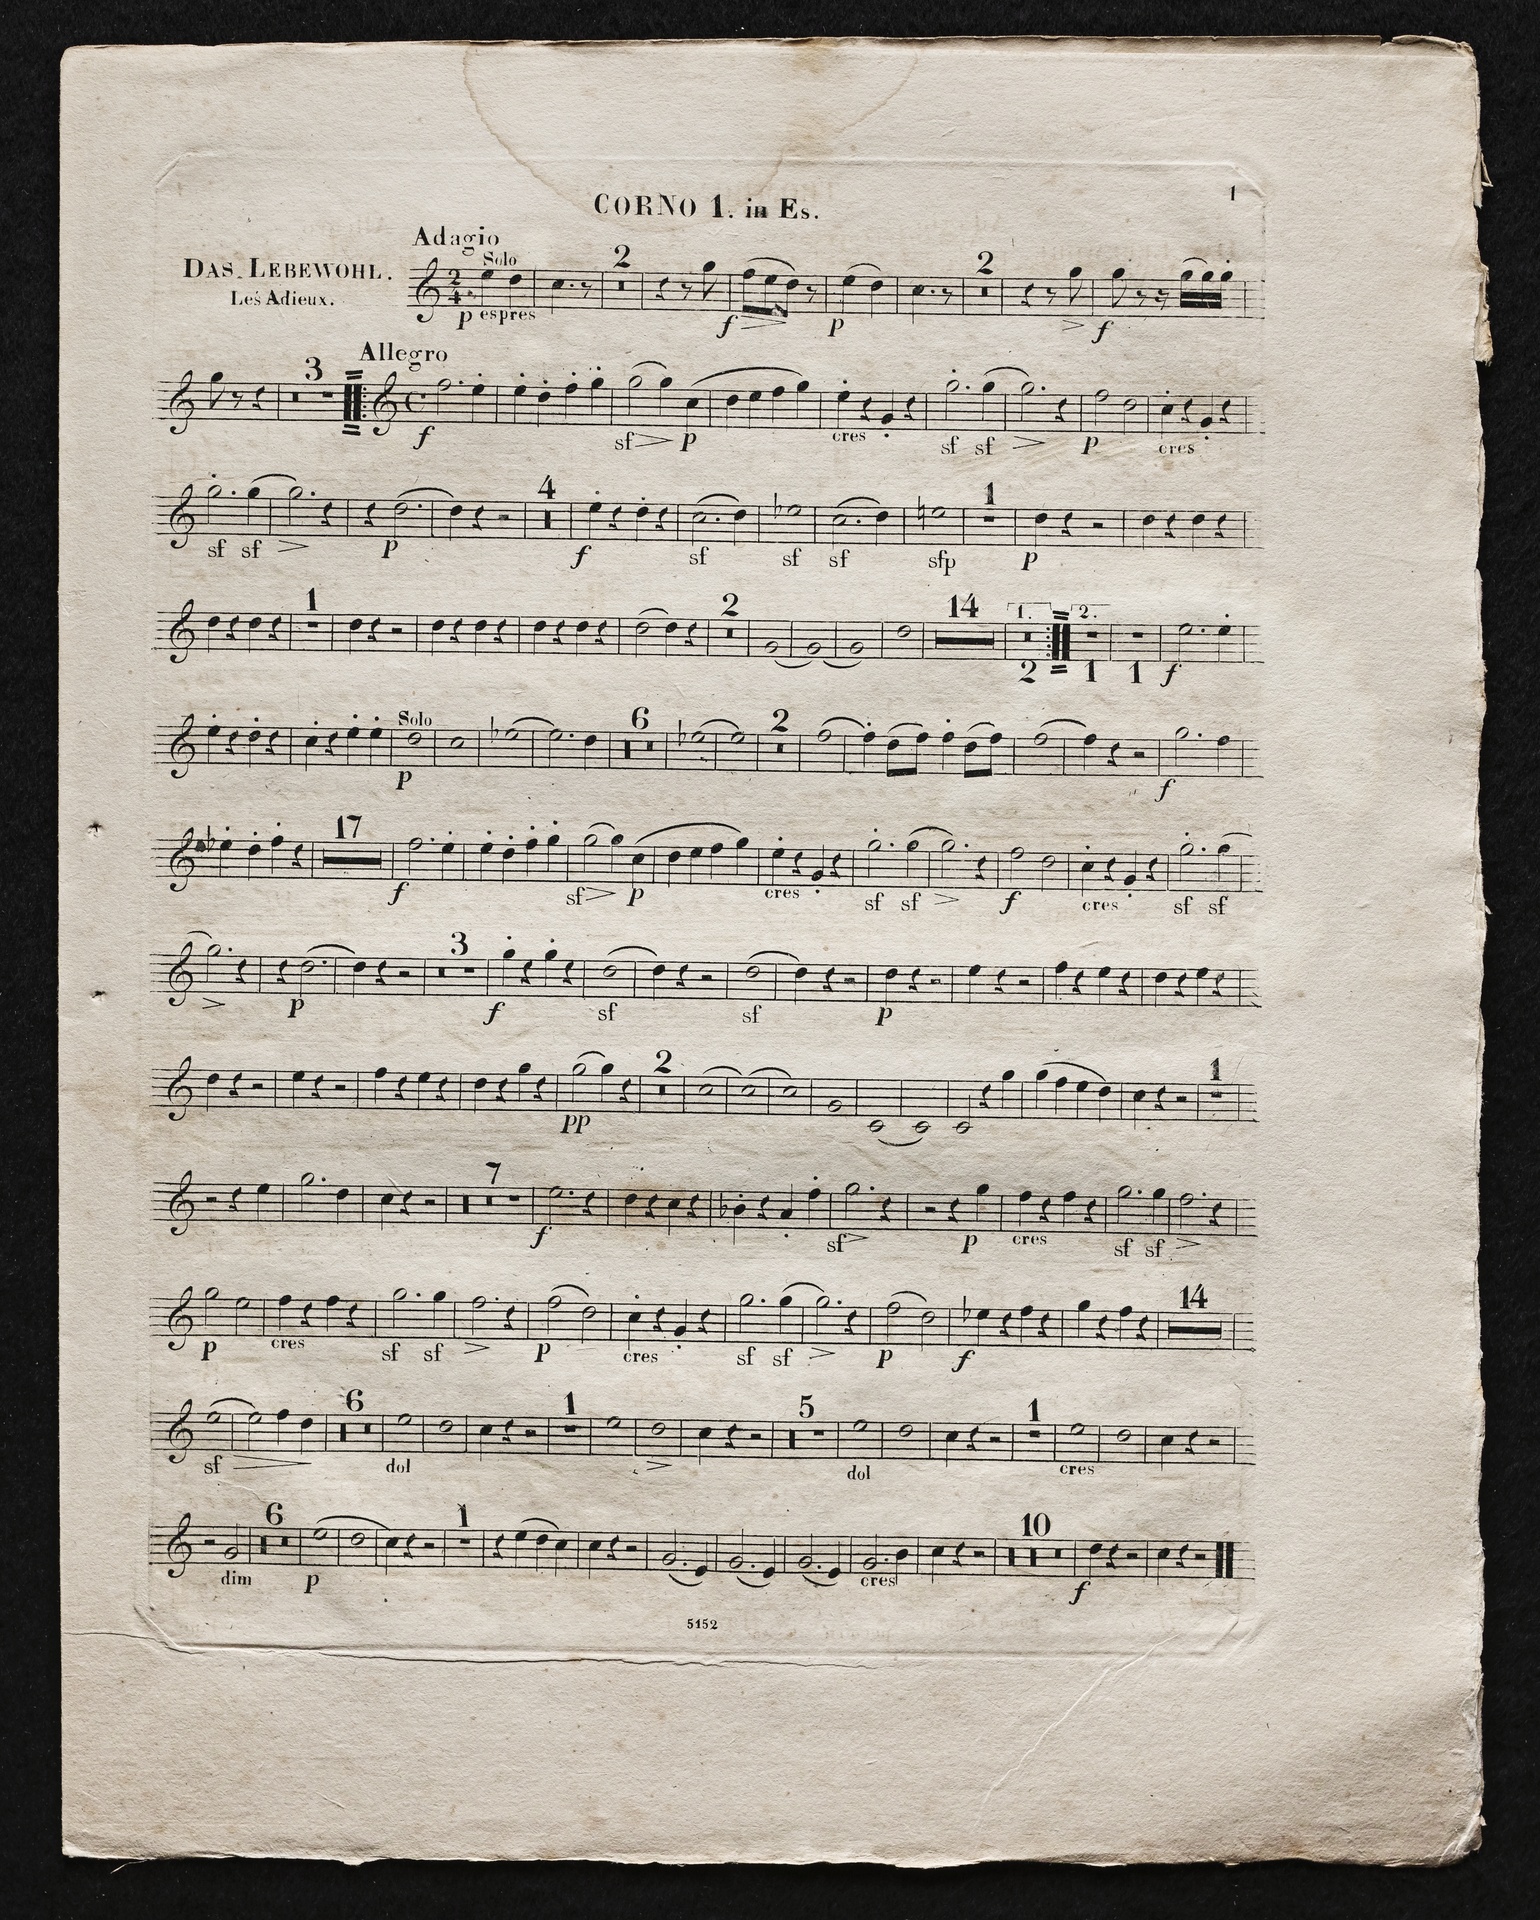 1
CORNO 1. in Es.
Adagio
DAS LEBEWOHL.
Les Adieux.
Solo 2 2
p espres f p f
Allegro
3
f sf p cres sf sf p cres
4 1
sf sf p f sf sf sf sfp p
1 2 14 1. 2.
2 1 1 f
Solo 6 2
p f
17
f sf p cres sf sf f cres sf sf
3
p f sf sf p
2 1
pp
7
f sf p cres sf sf
14
p cres sf sf p cres sf sf p f
6 1 5 1
sf dol dol cres
6 1 10
dim p cres f
5152